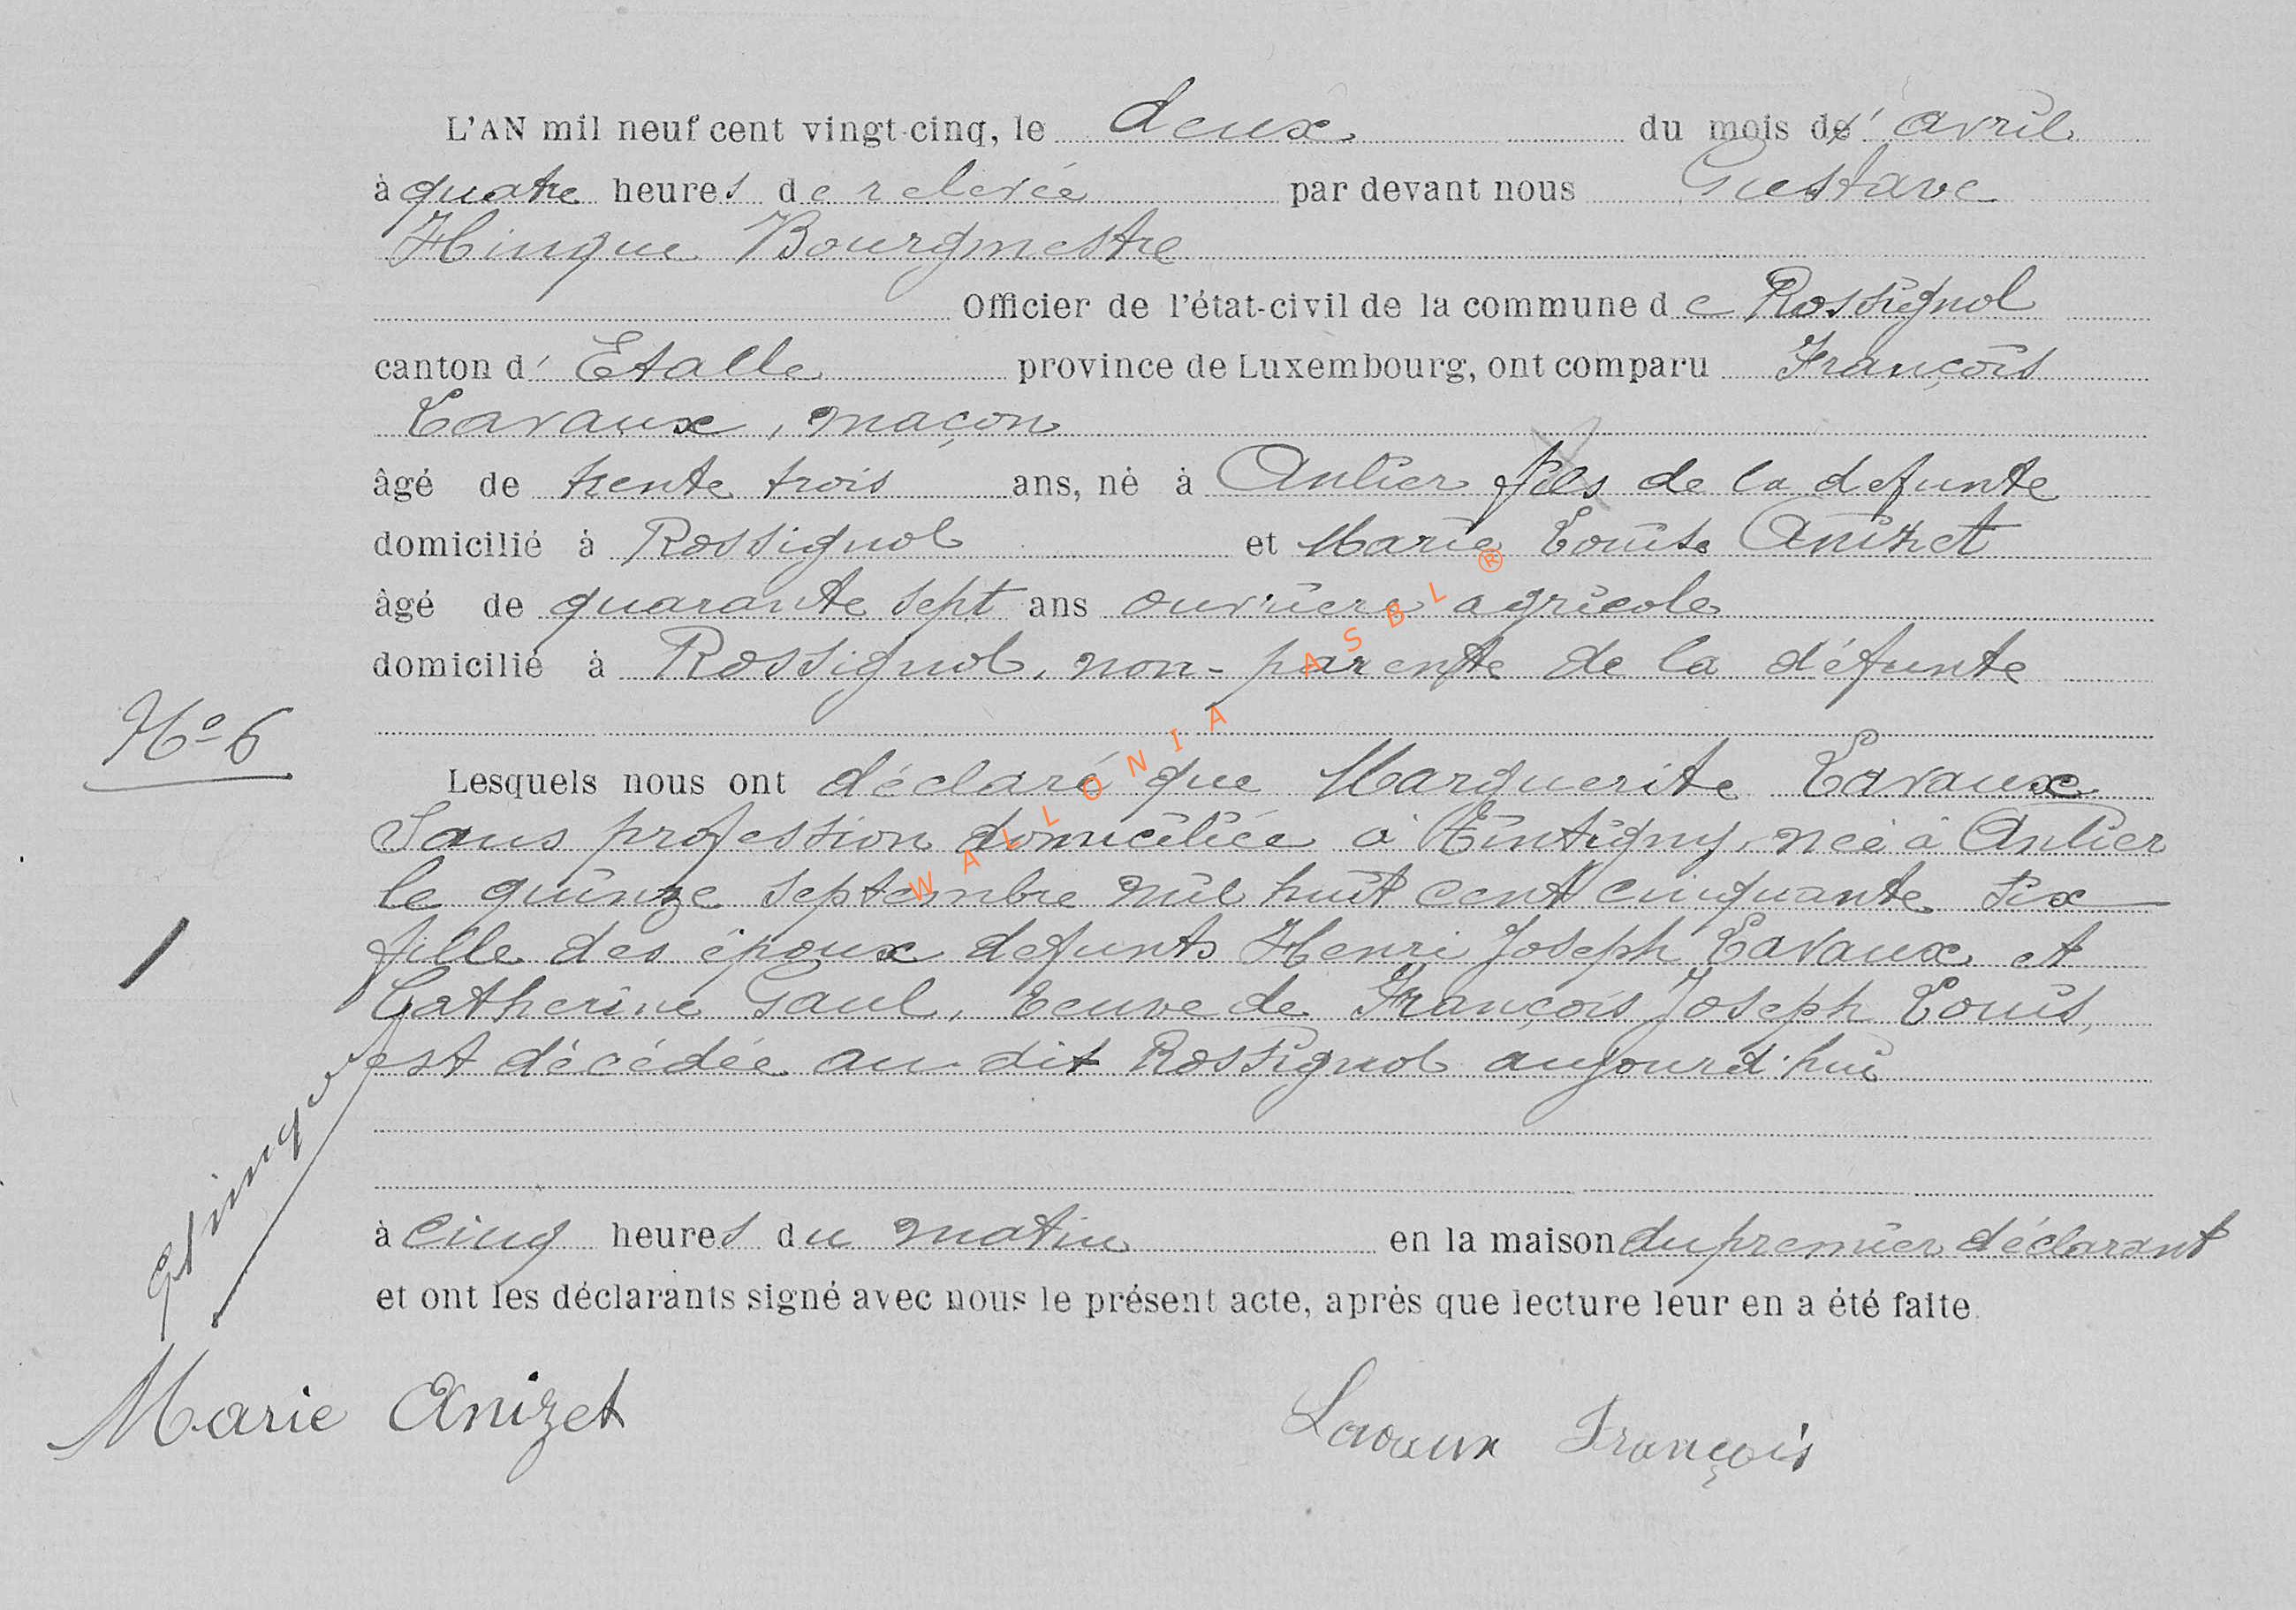 L'AN mil neuf cent vingt-cinq, le deux du mois d' avril
à quatre heures de relevée par devant nous Gustave
Hinque Bourgmestre
Officier de l'état-civil de la commune de Rossignol
canton d' Etalle province de Luxembourg, ont comparu François
Lavaux, maçon
âgé de trente trois ans, né à Anlier fils de la defunte
domicilié à Rossignol et Marie Louise Anizet
âgé de quarante sept ans ouvrière agricole
domicilié à Rossignol, non-parente de la défunte
No 6
Lesquels nous ont déclaré que Marguerite Lavaux
Sans profession domiciliée à Tintigny, née à Anlier
le quinze septembre mil huit cent cinquante six
fille des époux defunts Henri Joseph Lavaux et
Catherine Gaul, veuve de François Joseph Louis,
est décédée au dit Rossignol aujourd'hui
à cinq heures du matin en la maison du premier déclarant
et ont les déclarants signé avec nous le présent acte, après que lecture leur en a été faite
GHinque
Marie Anizet Lavaux François
WALLONIA ASBL ®